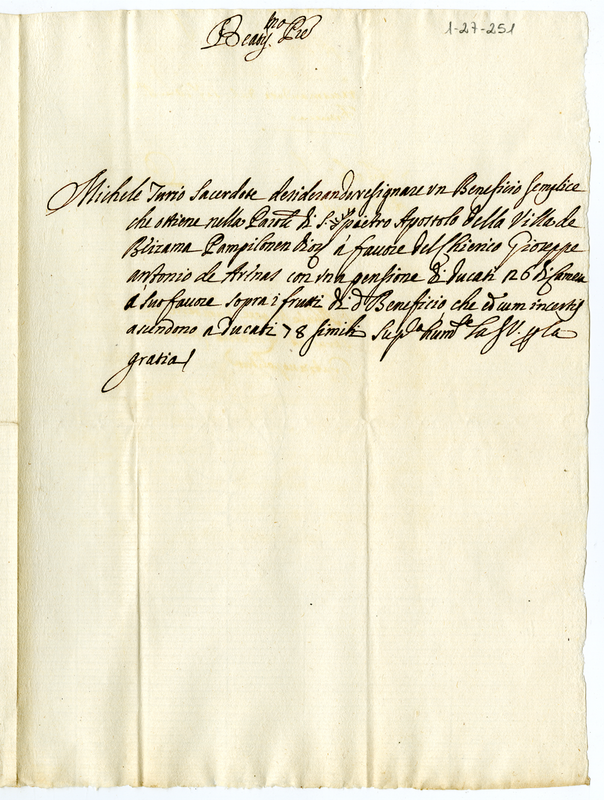 1-27-251
Beatmo. Pre
Michele Turio Sacerdote desiderando resignare un Beneficio semplice
che ottiene nella Paroli di S. Pietro Apostolo della Villa de
Bizama Pampilonen Dioy à favore del Chierico Gioseppe
antonio de Arinas con una pensione di ducati 26 di
a suo favore sopra i frutti di do Beneficio che et cum incertis
acendono a ducati 78 simili Supca humte la SV. p la
gratia